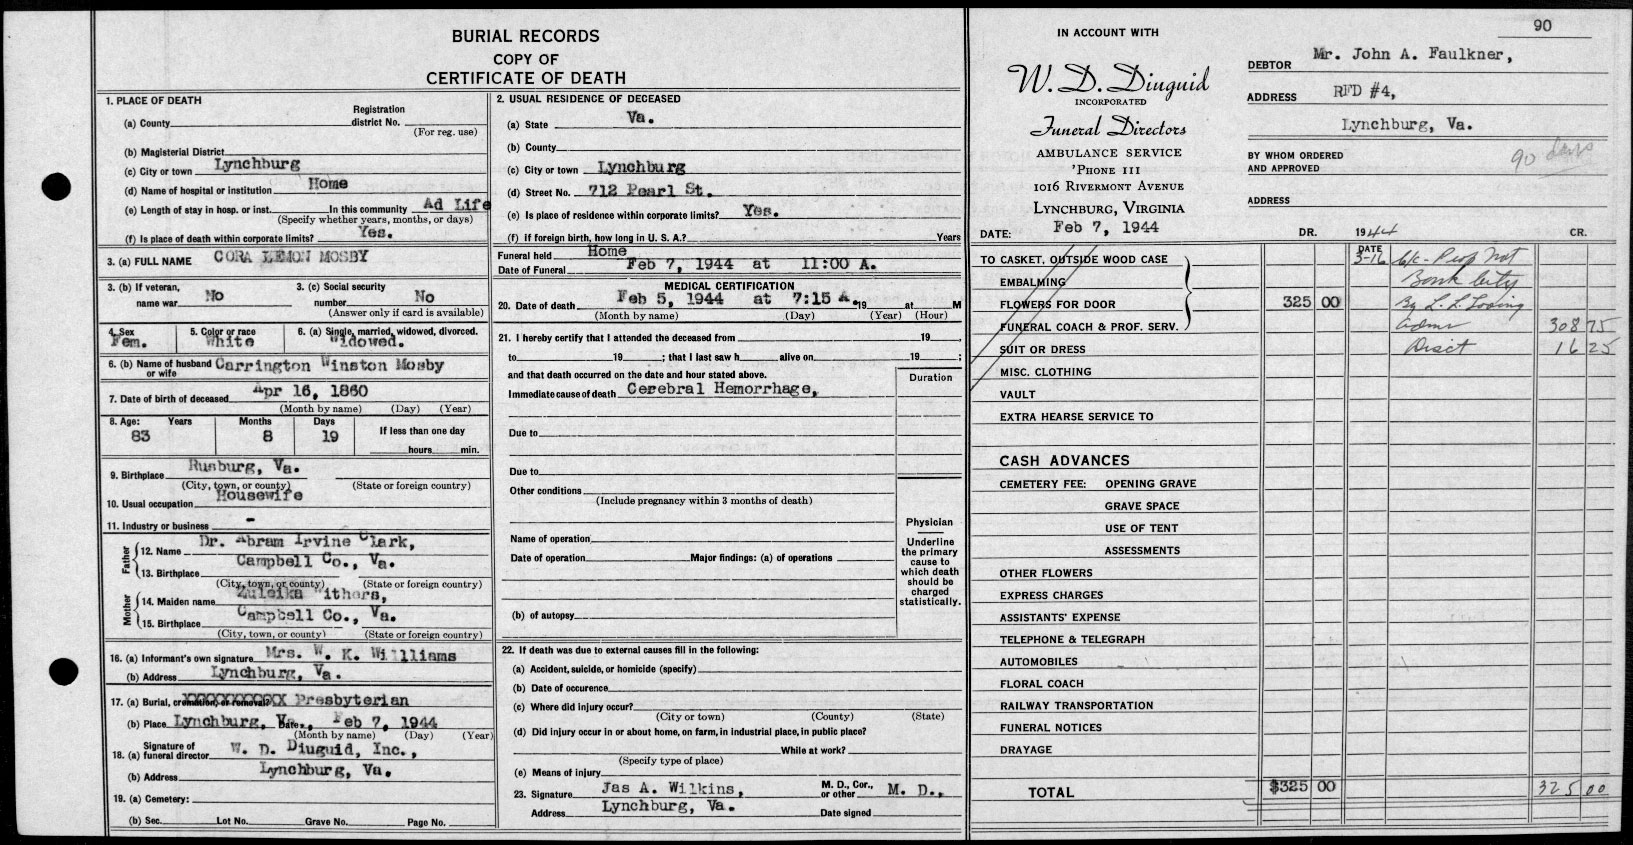 BURIAL RECORDS
COPY OF
CERTIFICATE OF DEATH
1. PLACE OF DEATH
(a) County
Registration district No.
(For reg. use)
(b) Magisterial District
(c) City or town Lynchburg
(d) Name of hospital or institution Home
(e) Length of stay in hosp. or inst. In this community Ad Life
(Specify whether years, months, or days)
(f) Is place of death within corporate limits? Yes.
3. (a) FULL NAME CORA LEMON MOSBY
3. (b) If veteran, name war No
3. (c) Social security number No
(Answer only if card is available)
4. Sex Fem.
5. Color or race White
6. (a) Single, married, widowed, divorced. Widowed.
6. (b) Name of husband or wife Carrington Winston Mosby
7. Date of birth of deceased Apr 16, 1860
(Month by name) (Day) (Year)
8. Age: Years Months Days If less than one day
83 8 19 hours min.
9. Birthplace Rusburg, Va.
(City, town, or county) (State or foreign country)
10. Usual occupation Housewife
11. Industry or business -
Father
12. Name Dr. Abram Irvine Clark,
13. Birthplace Campbell Co., Va.
(City, town, or county) (State or foreign country)
Mother
14. Maiden name Zuleika Withers,
15. Birthplace Campbell Co., Va.
(City, town, or county) (State or foreign country)
16. (a) Informant's own signature Mrs. W. K. Williams
(b) Address Lynchburg, Va.
17. (a) Burial, cremation, or removal? Presbyterian
(b) Place Lynchburg, Va., Date Feb 7, 1944
(Month by name) (Day) (Year)
18. (a) Signature of funeral director W. D. Diuguid, Inc.,
(b) Address Lynchburg, Va.
19. (a) Cemetery:
(b) Sec. Lot No. Grave No. Page No.
2. USUAL RESIDENCE OF DECEASED
(a) State Va.
(b) County
(c) City or town Lynchburg
(d) Street No. 712 Pearl St.
(e) Is place of residence within corporate limits? Yes.
(f) If foreign birth, how long in U. S. A.? Years
Funeral held Home
Date of Funeral Feb 7, 1944 at 11:00 A.
MEDICAL CERTIFICATION
20. Date of death Feb 5, 1944 at 7:15 A. 19 at M
(Month by name) (Day) (Year) (Hour)
21. I hereby certify that I attended the deceased from 19 ,
to 19 ; that I last saw h alive on 19 ;
and that death occurred on the date and hour stated above.
Duration
Immediate cause of death Cerebral Hemorrhage,
Due to
Due to
Other conditions
(Include pregnancy within 3 months of death)
Name of operation
Date of operation Major findings: (a) of operations
(b) of autopsy
Physician
Underline the primary cause to which death should be charged statistically.
22. If death was due to external causes fill in the following:
(a) Accident, suicide, or homicide (specify)
(b) Date of occurence
(c) Where did injury occur?
(City or town) (County) (State)
(d) Did injury occur in or about home, on farm, in industrial place, in public place?
While at work?
(Specify type of place)
(e) Means of injury
23. Signature Jas A. Wilkins, M. D., Cor., or other M. D.,
Address Lynchburg, Va. Date signed
90
IN ACCOUNT WITH
W. D. Diuguid
INCORPORATED
Funeral Directors
AMBULANCE SERVICE
'PHONE 111
1016 RIVERMONT AVENUE
LYNCHBURG, VIRGINIA
DATE: Feb 7, 1944
DEBTOR Mr. John A. Faulkner,
ADDRESS RFD #4,
Lynchburg, Va.
BY WHOM ORDERED AND APPROVED
90 days
ADDRESS
DR. 1944 CR.
TO CASKET, OUTSIDE WOOD CASE
DATE
3-16 c/c - Peop Nat
EMBALMING
Bank City
FLOWERS FOR DOOR 325 00 By L. L. Loving
FUNERAL COACH & PROF. SERV. Admr 308 75
SUIT OR DRESS Disct 16 25
MISC. CLOTHING
VAULT
EXTRA HEARSE SERVICE TO
CASH ADVANCES
CEMETERY FEE: OPENING GRAVE
GRAVE SPACE
USE OF TENT
ASSESSMENTS
OTHER FLOWERS
EXPRESS CHARGES
ASSISTANTS' EXPENSE
TELEPHONE & TELEGRAPH
AUTOMOBILES
FLORAL COACH
RAILWAY TRANSPORTATION
FUNERAL NOTICES
DRAYAGE
TOTAL $325 00 325 00